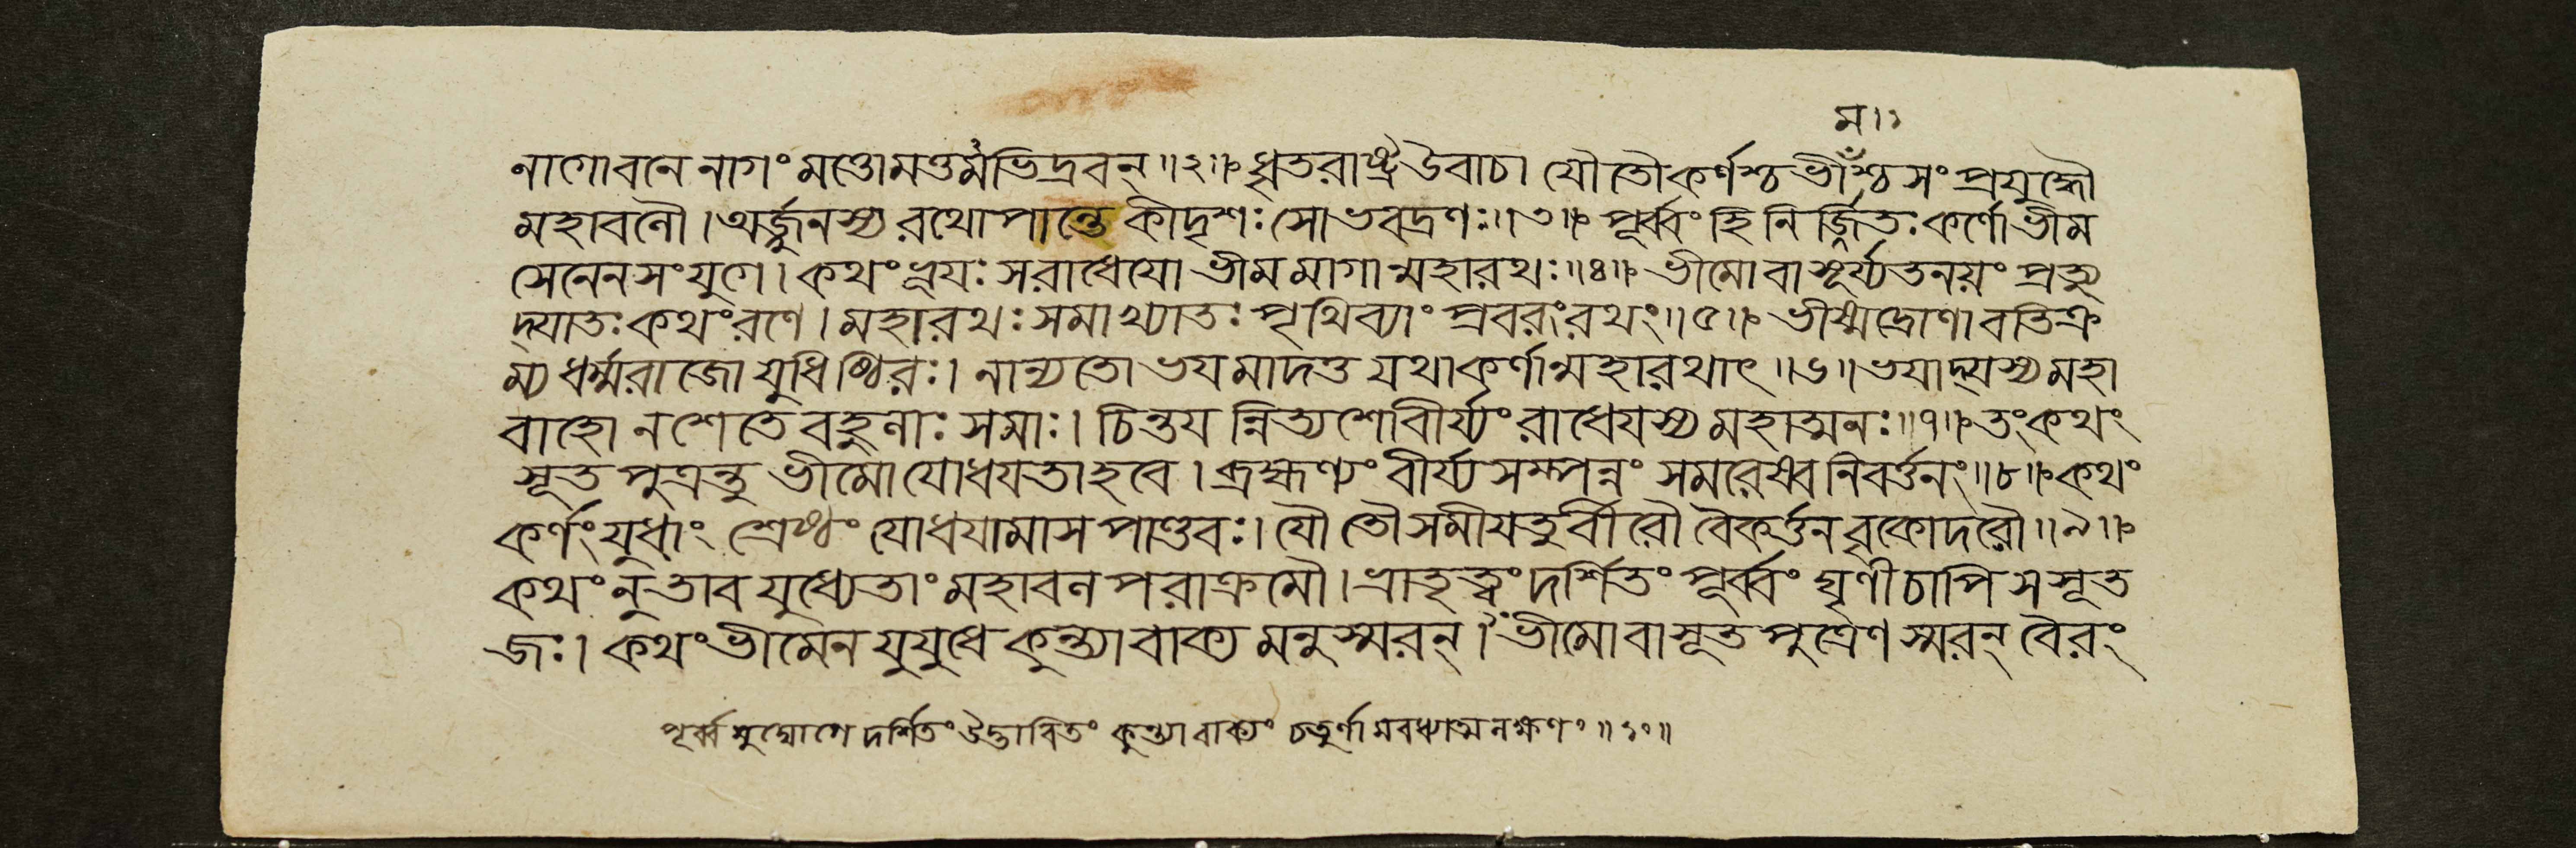 ম।১
নাগোবনে নাগং মত্তোমত্তমভিদ্রবন্॥২॥ ধৃতরাষ্ট্রউবাচ। যৌতৌকর্ণশ্চভীশ্চসংপ্রযুদ্ধৌ
মহাবলৌ। অর্জ্জুনস্য রথোপান্তে কীদৃশঃ সোভবদ্রণঃ॥৩॥ পূর্ব্বং হি নির্জ্জিতঃ কর্ণো ভীম
সেনেন সংযুগে। কথং ভূয়ঃ স রাধেয়ো ভীমমাগান্মহারথঃ॥৪॥ ভীমো বা সূর্য্যতনয়ং প্রত্যু
দ্যাতঃ কথং রণে। মহারথঃ সমাখ্যাতঃ পৃথিব্যাং প্রবরংরথং॥৫॥ ভীষ্মদ্রোণাবতিক্র
ম্য ধর্ম্মরাজো যুধিষ্ঠিরঃ। নান্যতো ভয়মাদত্ত যথা কর্ণান্মহারথাৎ॥৬॥ ভয়াদ্যস্য মহা
বাহো ন শেতে বহুলাঃ সমাঃ। চিন্তয়ন্নিত্যশোবীর্য্যং রাধেয়স্য মহাত্মনঃ॥৭॥ তংকথং
সূতপুত্রন্তু ভীমোযোধয়তাহবে। ব্রহ্মণ্যং বীর্য্যসম্পন্নং সমরেষ্বনিবর্ত্তনং॥৮॥ কথং
কর্ণং যুধাং শ্রেষ্ঠং যোধয়ামাস পাণ্ডবঃ। যৌ তৌ সমীয়তুর্বীরৌ বৈকর্ত্তনবৃকোদরৌ॥৯॥
কথং নু তাবযুধ্যেতাং মহাবলপরাক্রমৌ। ভ্রাতৃত্বং দর্শিতং পূর্ব্বং ঘৃণী চাপি স সূত
জঃ। কথং ভীমেন যুযুধে কুন্ত্যা বাক্যমনুস্মরন্। ভীমো বা সূতপুত্রেণ স্মরন্ বৈরং
পূর্ব্বমুদ্যোগে দর্শিতং উদ্ভাবিতং কুন্ত্যা বাক্যং চতুর্ণামবধ্যাত্মলক্ষণং॥১০॥